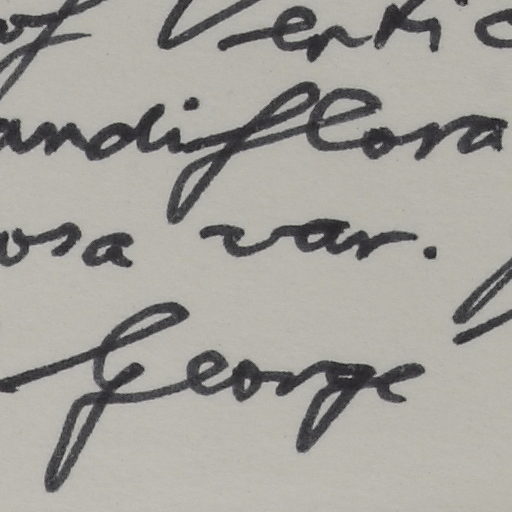 of Vertic
andiflora
osa var.
George